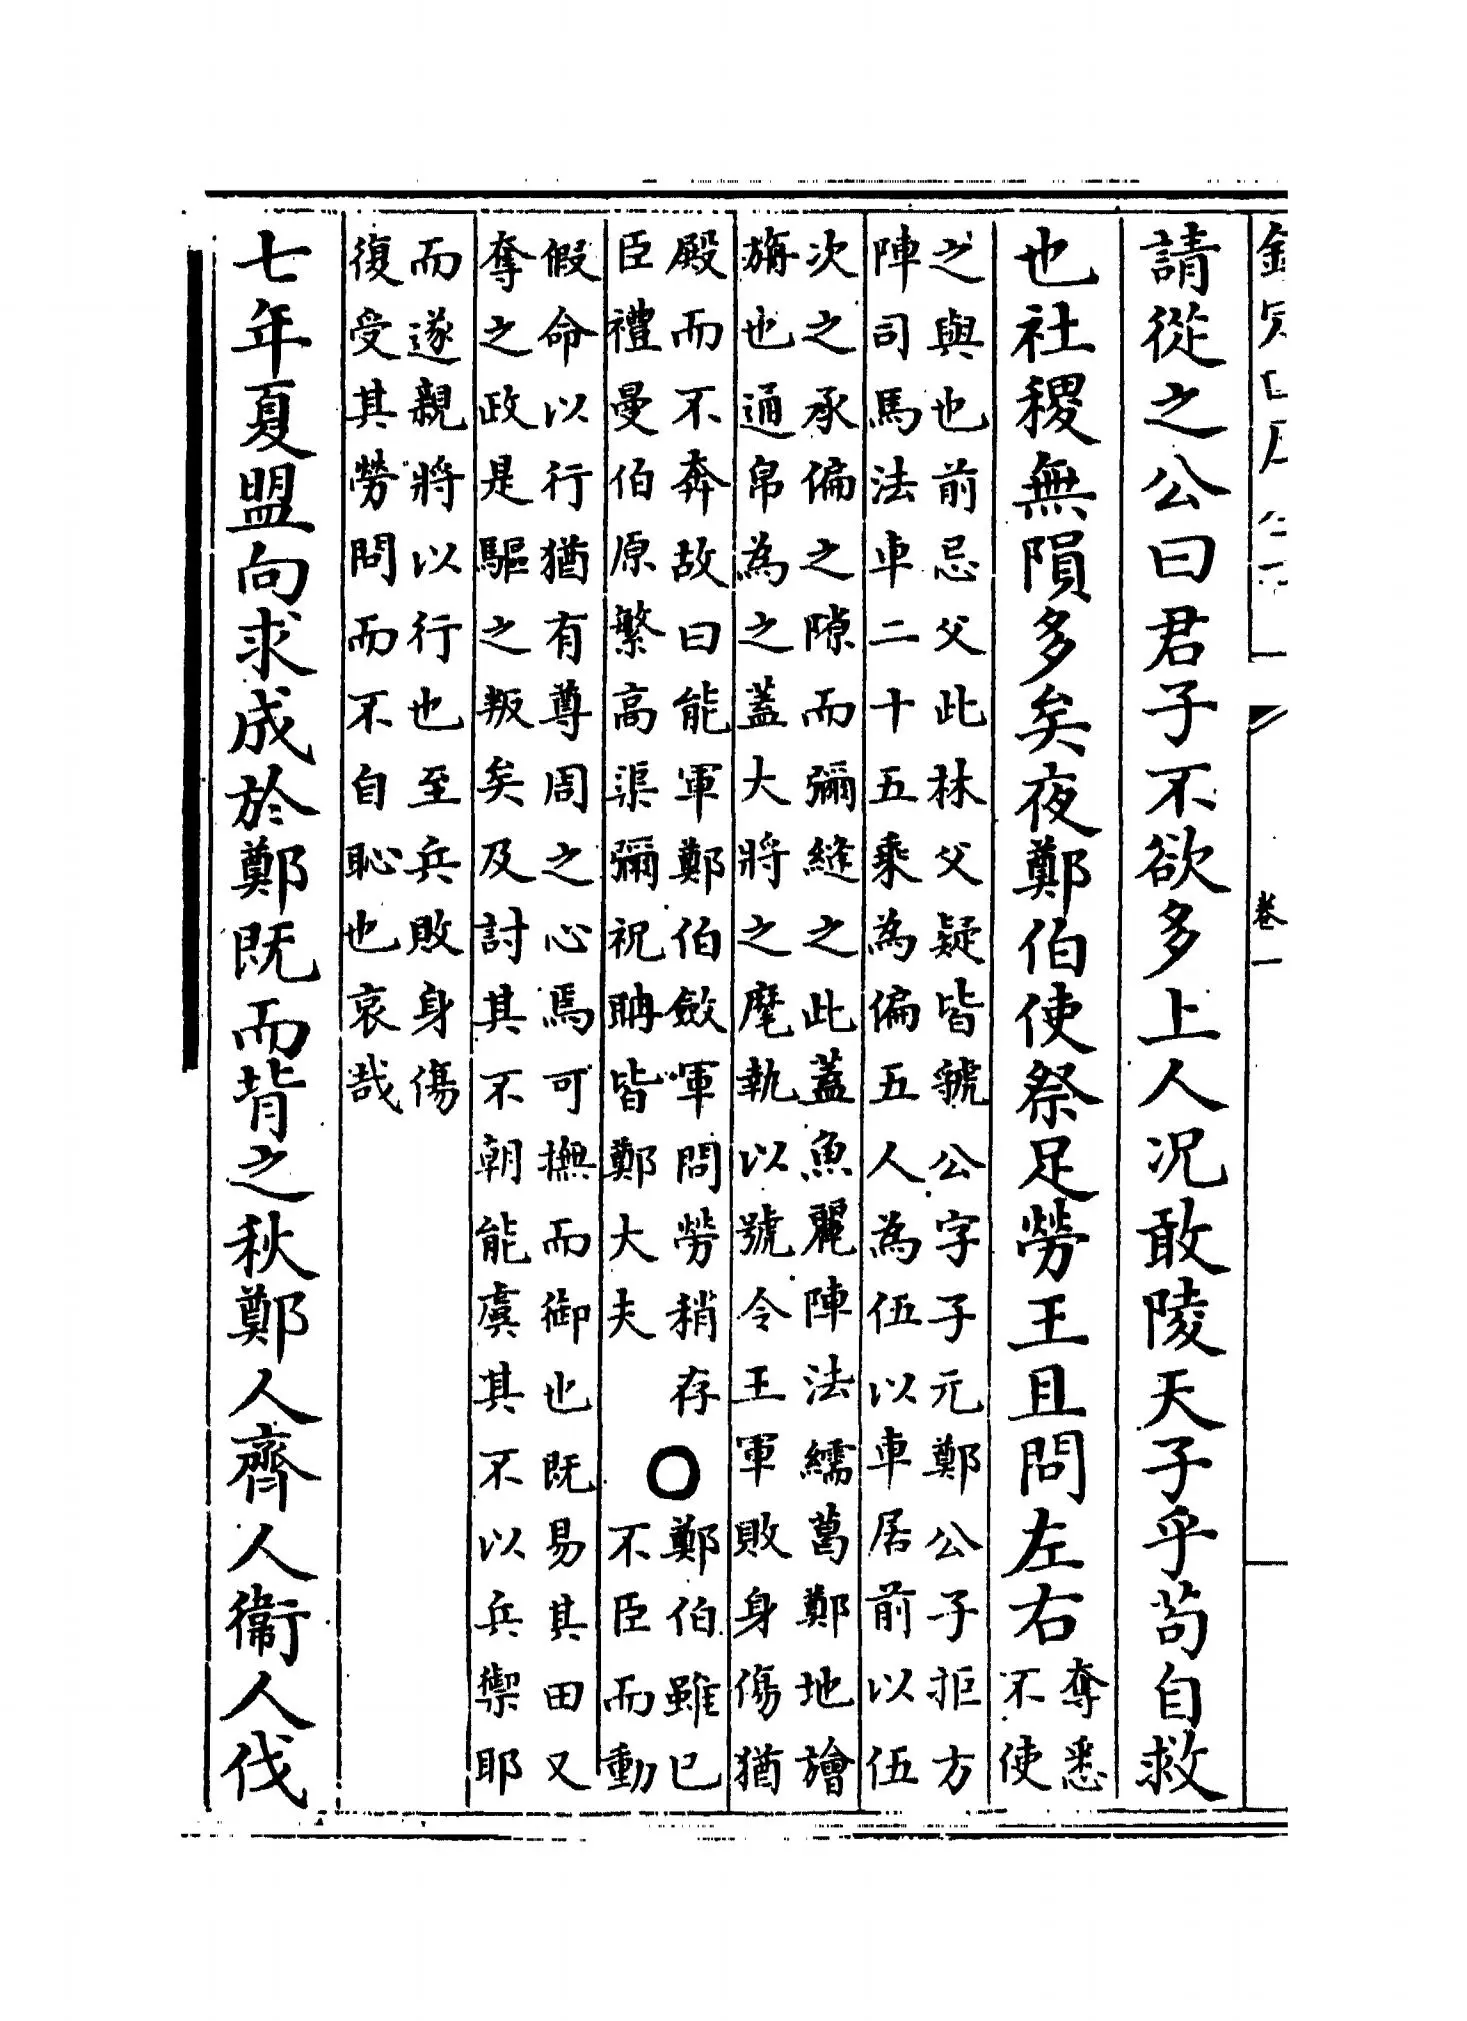 卷一
請從之公曰君子不欲多上人況敢陵天子乎苟自救
也社稷無隕多矣夜鄭伯使祭足勞王且問左右
奪悉
不使
之與也前忌父此林父疑皆虢公字子元鄭公子拒方
陣司馬法車二十五乘為偏五人為伍以車居前以伍
次之承偏之隙而彌縫之此蓋魚麗陣法繻葛鄭地旝
旃也通帛為之蓋大將之麾執以號令王軍敗身傷猶
殿而不奔故曰能軍鄭伯斂軍問勞稍存
臣禮曼伯原繁高渠彌祝聃皆鄭大夫
○
鄭伯雖已
不臣而動
假命以行猶有尊周之心焉可撫而御也既易其田又
奪之政是驅之叛矣及討其不朝能虞其不以兵禦耶
而遂親將以行也至兵敗身傷
復受其勞問而不自恥也哀哉
七年夏盟向求成於鄭既而背之秋鄭人齊人衞人伐